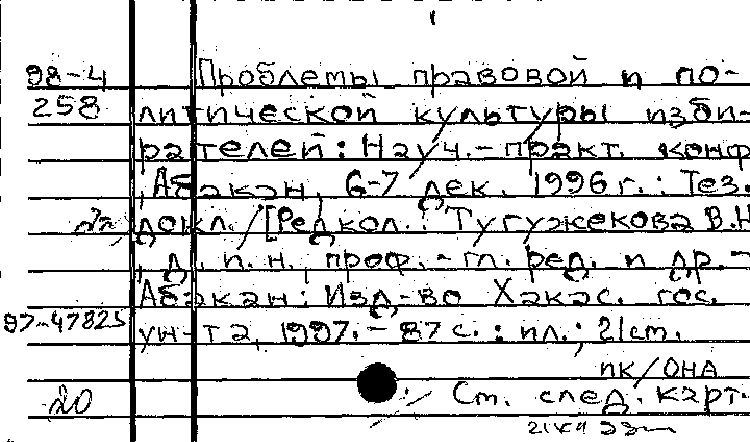 98-4 Проблемы правовой и по-
258 литической культуры изби-
рателей: Науч.-практ. конф
, Абакан, 6-7 дек. 1996 г.: Тез.
докл. / [Редкол.: Тугужекова В.Н
, д. и. н., проф. - гл. ред. и др. -
Абакан: Изд-во Хакас. гос.
97-47825 ун-та, 1997. - 87 с.: ил.; 21 см.
пк/ОНА
20 См. след. карт.